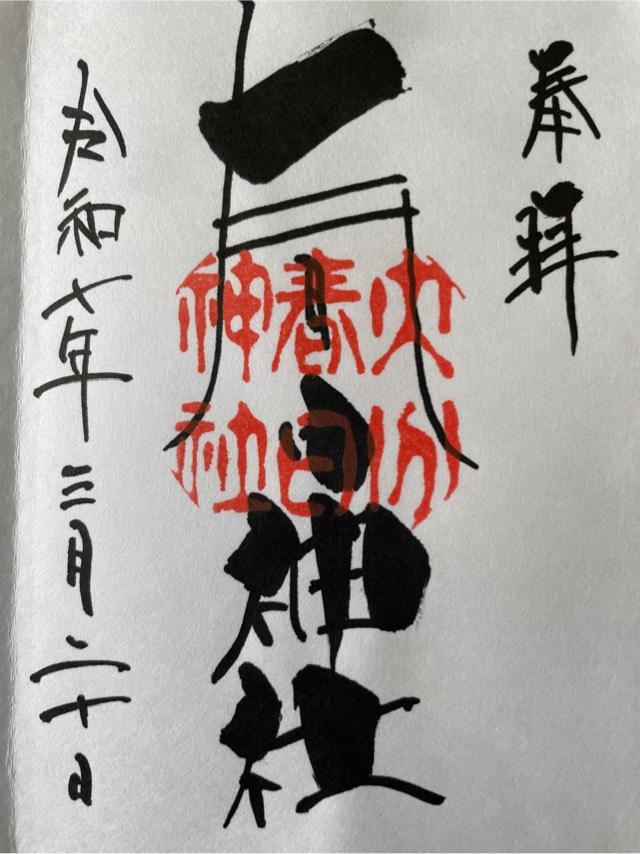 奉拝
春日神社
大分
春日
神社
令和七年三月二十日